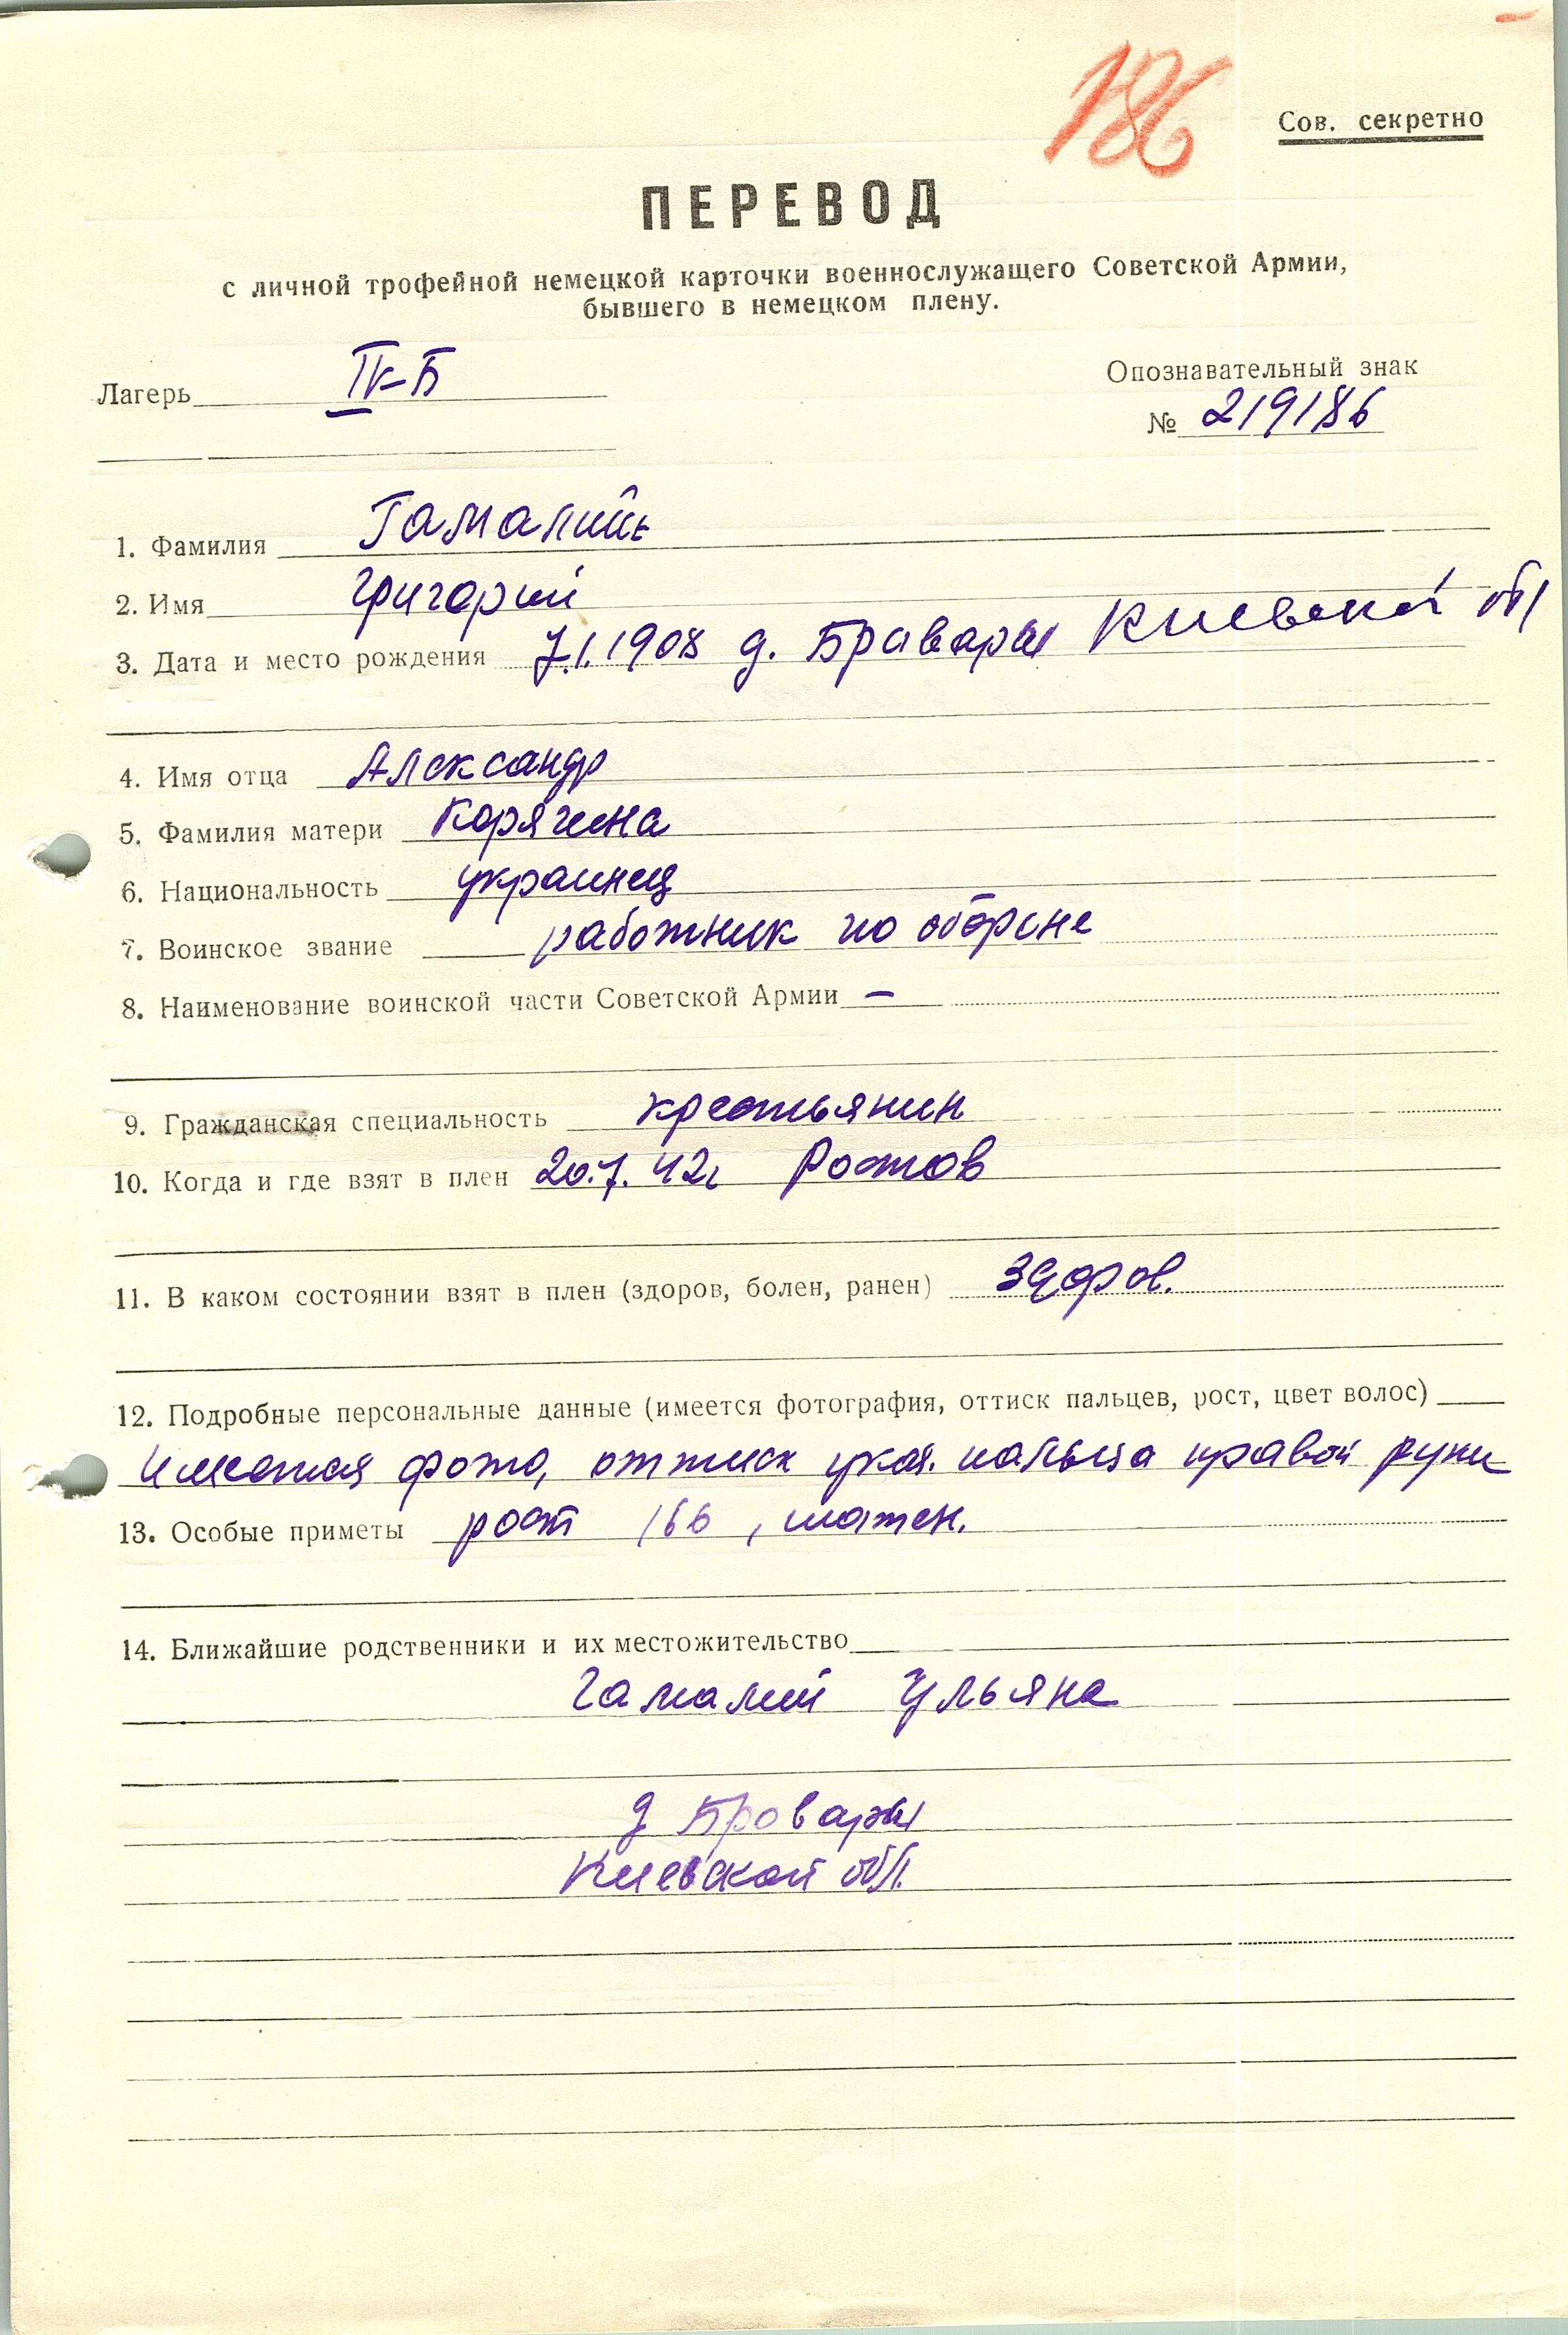 186
Сов. секретно
ПЕРЕВОД
с личной трофейной немецкой карточки военнослужащего Советской Армии,
бывшего в немецком плену.
Лагерь IV-Б
Опознавательный знак
№ 219186
1. Фамилия Гамалий
2. Имя Григорий
3. Дата и место рождения 7.1.1908 д. Бравары Киевской обл
4. Имя отца Александр
5. Фамилия матери Корягина
6. Национальность украинец
7. Воинское звание работник по обороне
8. Наименование воинской части Советской Армии —
9. Гражданская специальность крестьянин
10. Когда и где взят в плен 20.7.42г Ростов
11. В каком состоянии взят в плен (здоров, болен, ранен) здоров.
12. Подробные персональные данные (имеется фотография, оттиск пальцев, рост, цвет волос)
имеются фото, оттиск указ. пальца правой руки
13. Особые приметы рост 166, шатен.
14. Ближайшие родственники и их местожительство
Гамалий Ульяна
д Бровары
Киевской обл.